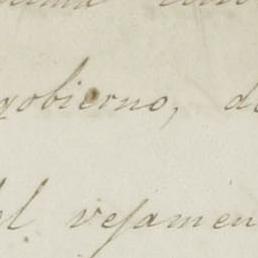 gobierno, d
el vejamen